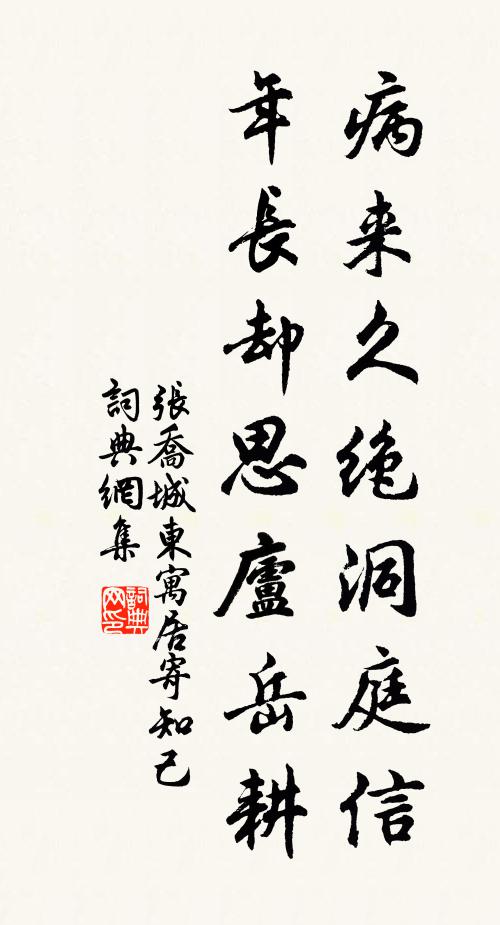 病来久绝洞庭信
年長却思廬岳耕
張喬城東寓居寄知己
詞典網集
詞典网印